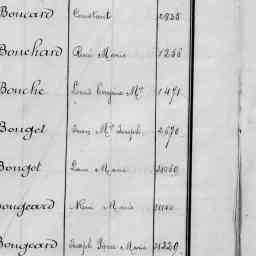 Boucard Constant
Bouchard René Marie 1256
Bouche Louis Eugène Mie 1471
Bouget Jean Mie Joseph 2670
Bouget Louis Marie
Bougeard Marie
Bougeard Joseph Pierre Marie 220